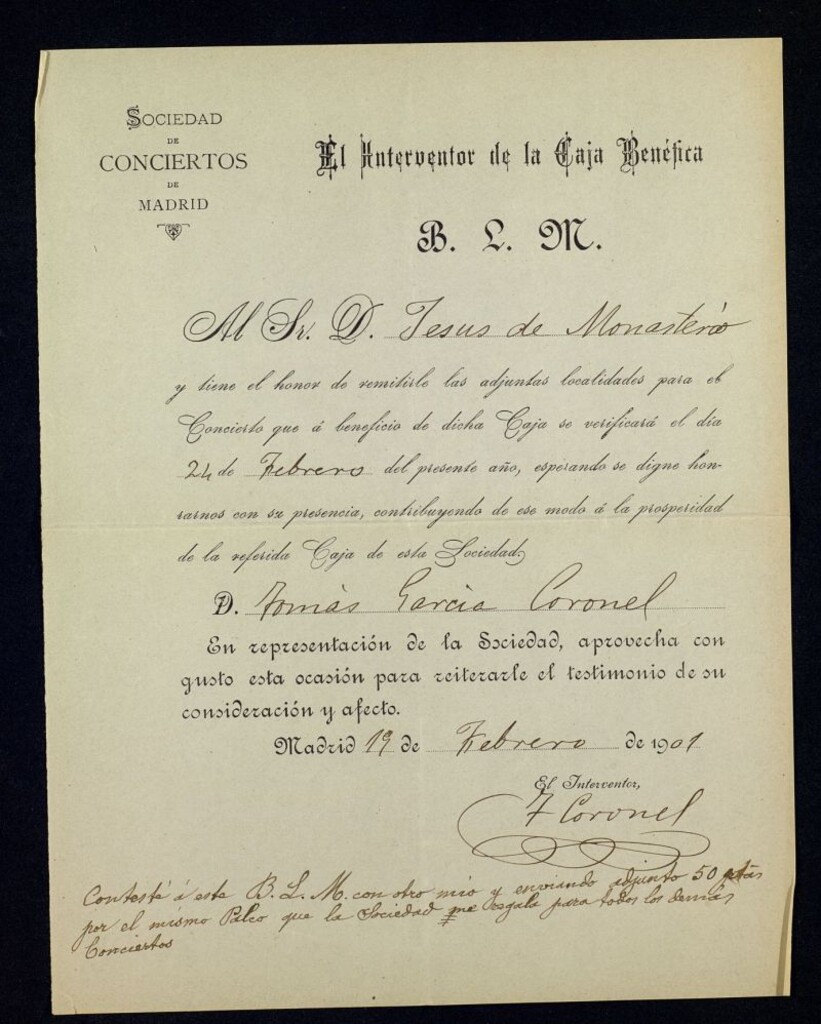 SOCIEDAD
DE
CONCIERTOS
DE
MADRID
El Interventor de la Caja Benéfica
B. L. M.
Al Sr. D. Jesus de Monasterio
y tiene el honor de remitirle las adjuntas localidades para el
Concierto que á beneficio de dicha Caja se verificará el dia
24 de Febrero del presente año, esperando se digne hon-
rarnos con su presencia, contribuyendo de ese modo á la prosperidad
de la referida Caja de esta Sociedad.
D. Tomás Garcia Coronel
En representación de la Sociedad, aprovecha con
gusto esta ocasión para reiterarle el testimonio de su
consideración y afecto.
Madrid 19 de Febrero de 1901
El Interventor,
T Coronel
Contesté á este B. L. M. con otro mio y enviando adjunto 50 ptas
por el mismo Palco que la Sociedad me regala para todos los demás
Conciertos